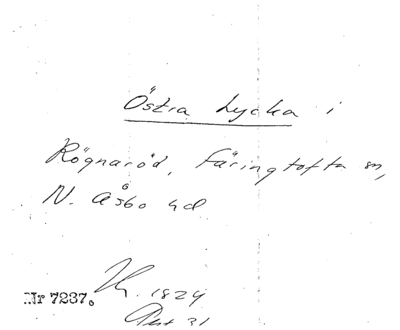 Östra Lycka i
Rögnaröd, Färingtofta sn,
N. Åsbo hd
Nr 7237.
1824